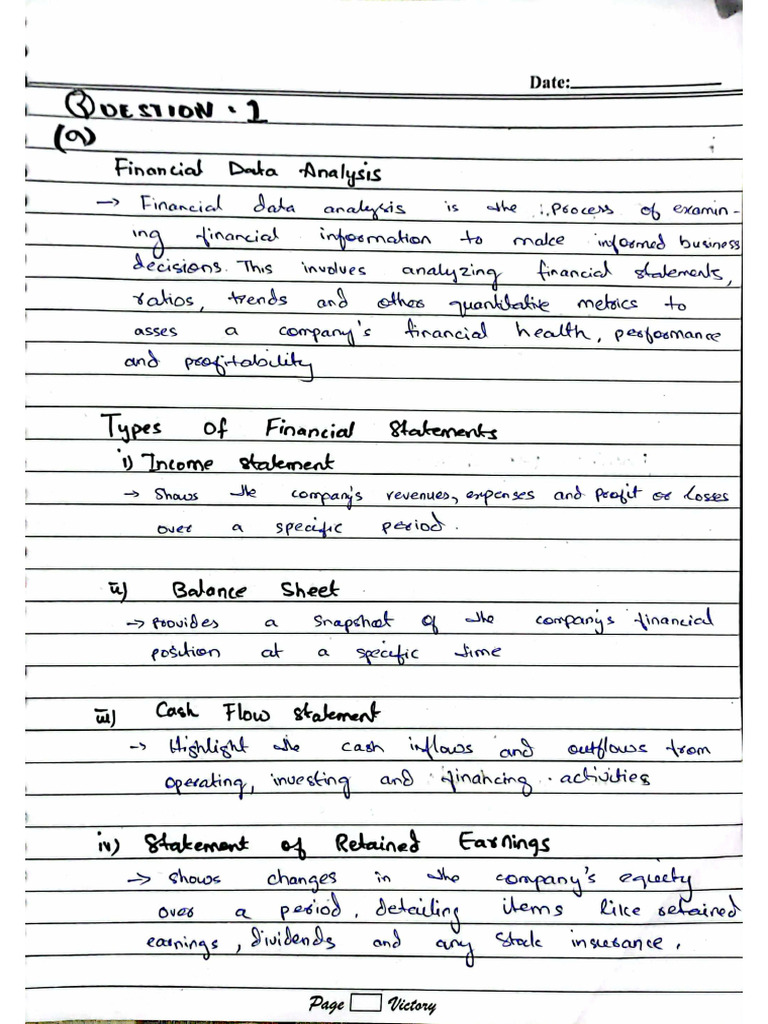 Date:
QUESTION. 1
(a)
Financial Data Analysis
→ Financial data analysis is the process of examin-
ing financial information to make informed business
decisions. This involves analyzing financial statements,
ratios, trends and other quantitative metrics to
asses a company's financial health, performance
and profitability
Types of Financial Statements
i) Income statement
→ shows the company's revenues, expenses and profit or losses
over a specific period.
ii) Balance Sheet
→ provides a snapshot of the company's financial
position at a specific time
iii) Cash Flow statement
→ Highlight the cash inflows and outflows from
operating, investing and financing activities
iv) Statement of Retained Earnings
→ shows changes in the company's equity
over a period, detailing items like retained
earnings, dividends and any stock insurance.
Page Victory